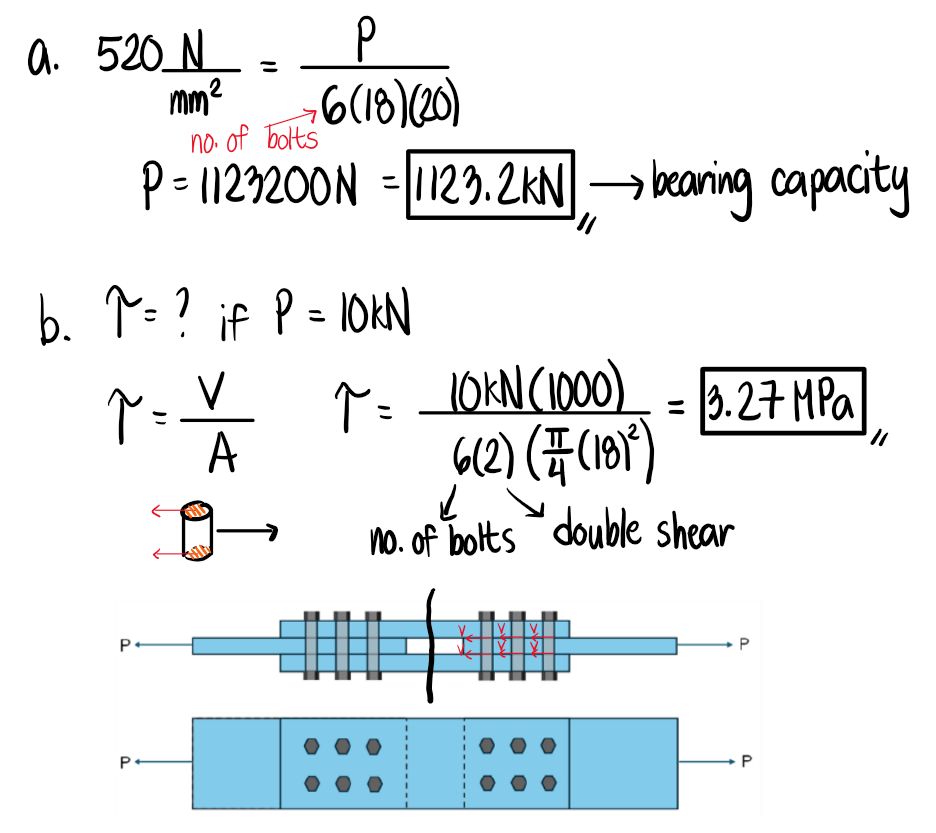 a. 520 N/mm² = P/6(18)(20)
no. of bolts
P = 1123200N = 1123.2kN → bearing capacity
b. τ = ? if P = 10kN
τ = V/A τ = 10kN(1000)/6(2)(π/4(18)²) = 3.27 MPa
no. of bolts double shear
V V V
P P
V V V
P P